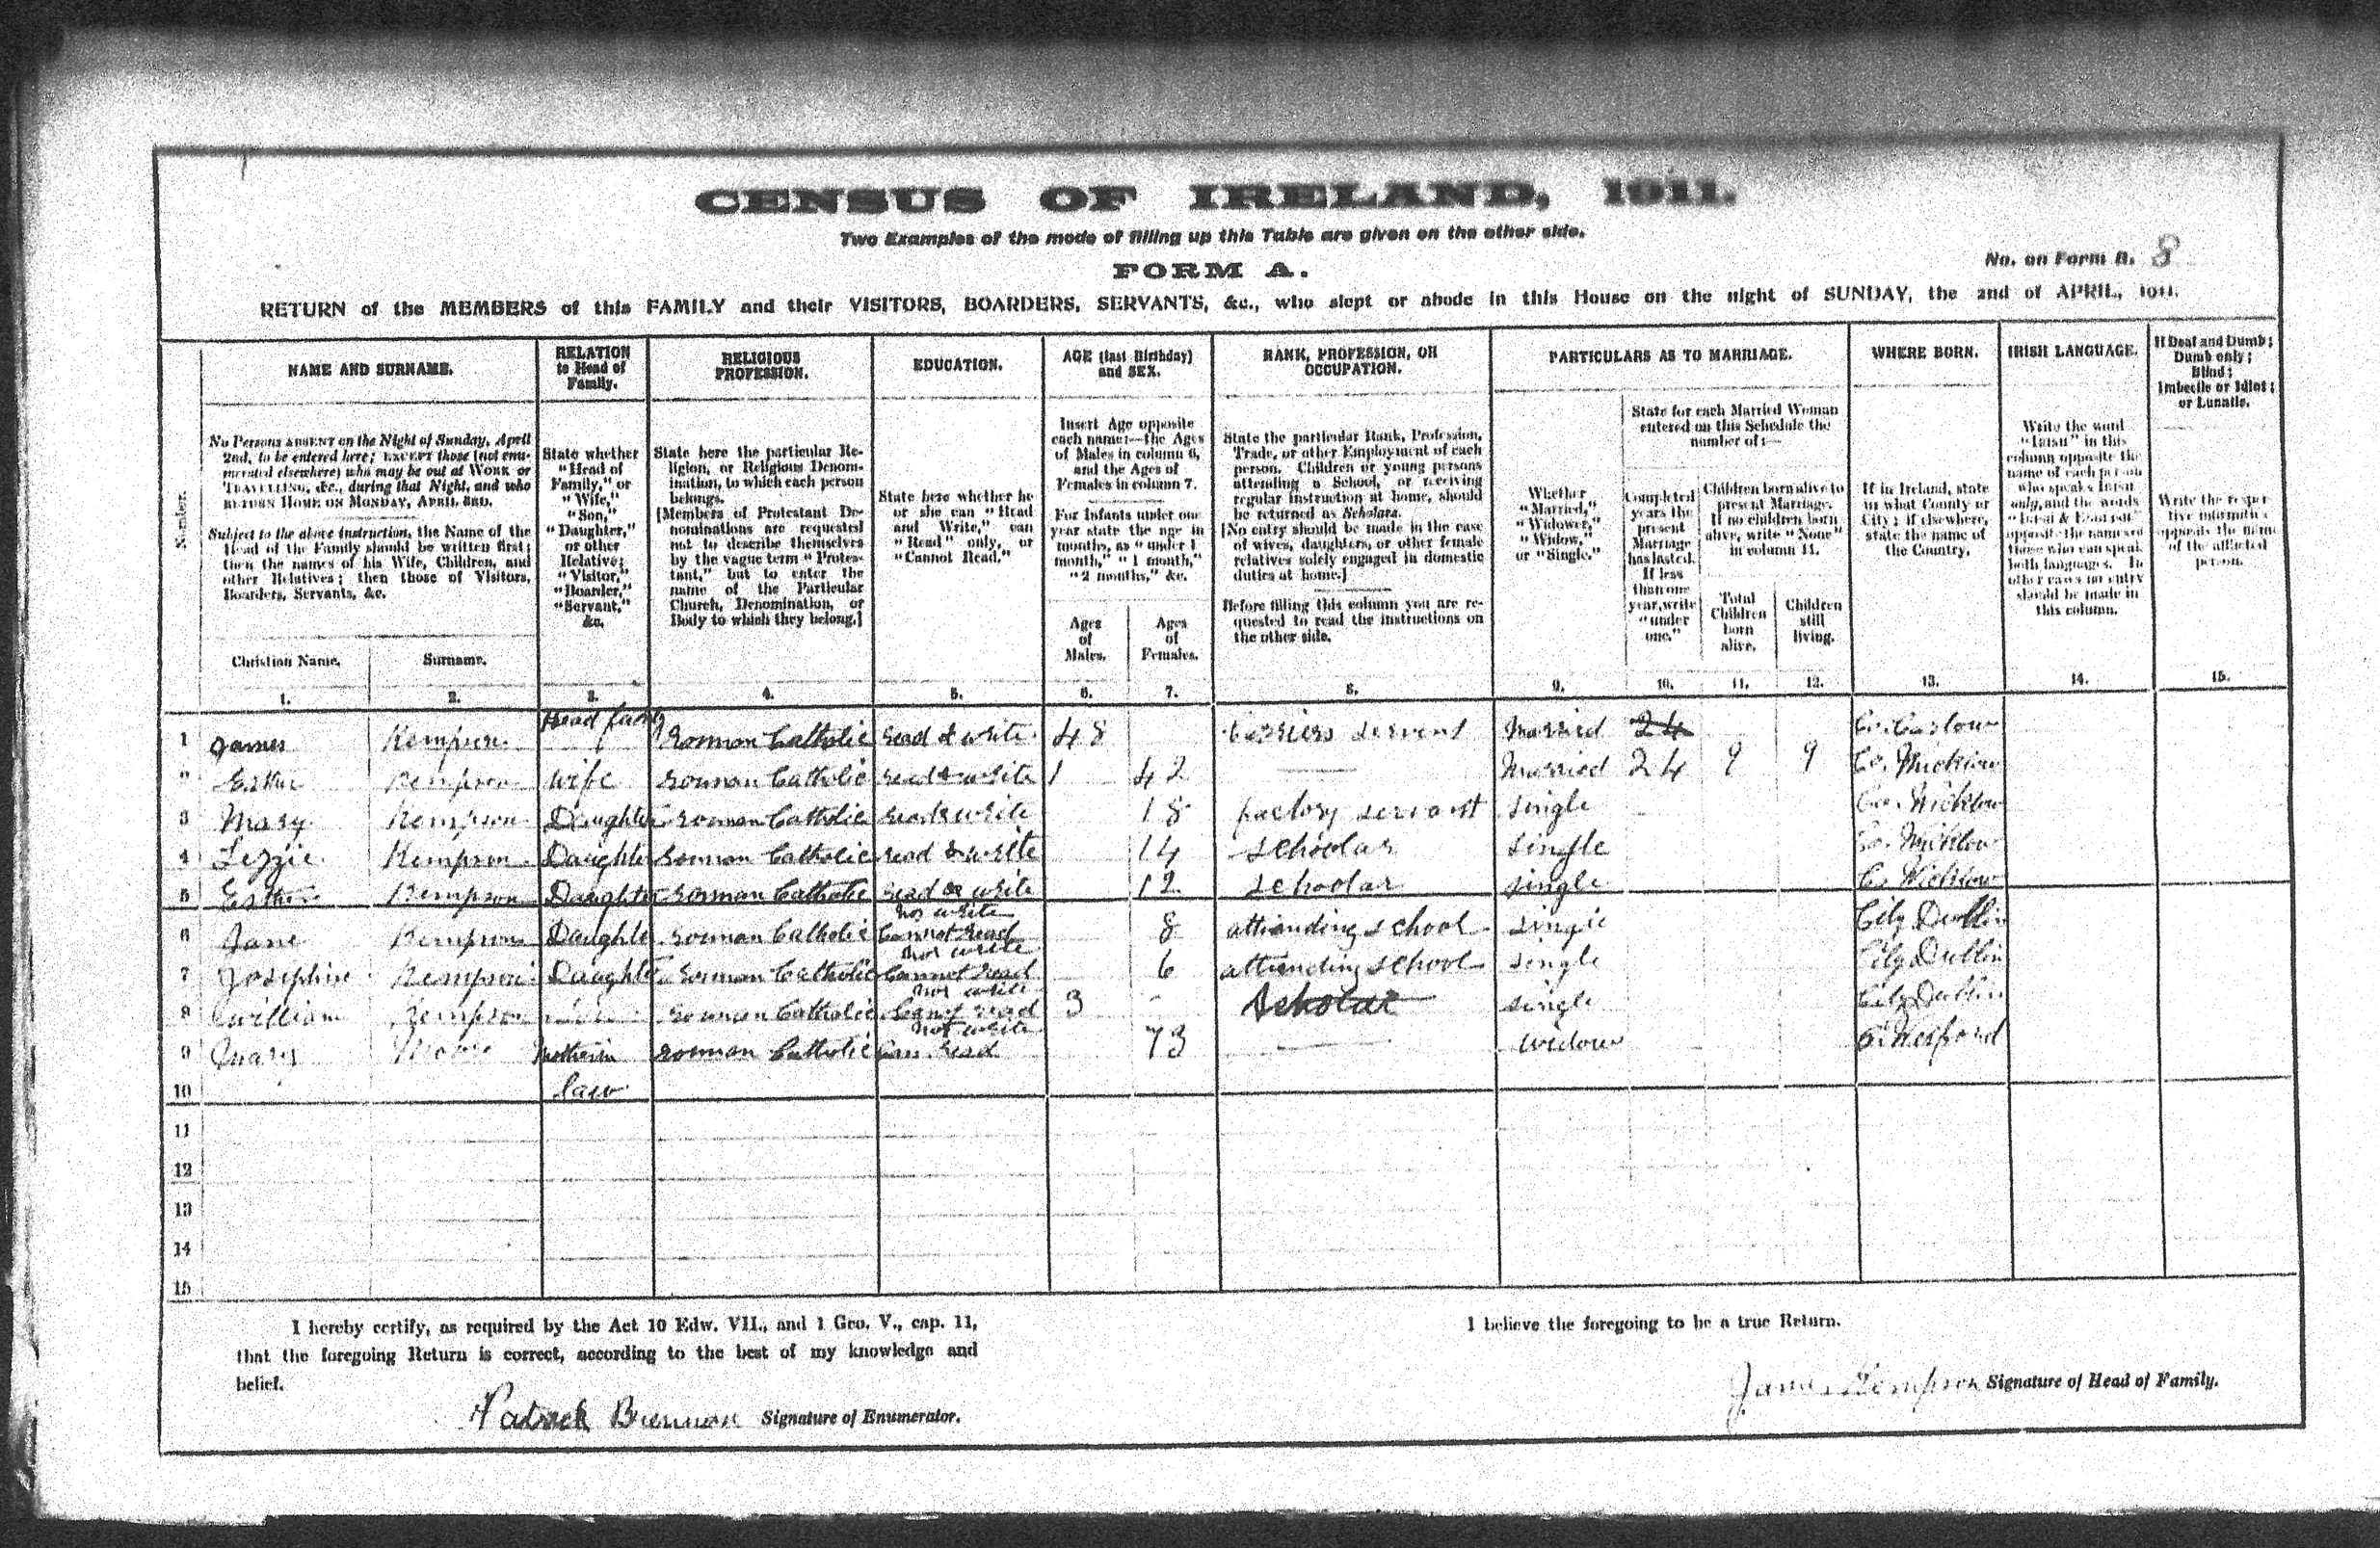 CENSUS OF IRELAND, 1911.
Two Examples of the mode of filling up this Table are given on the other side.
FORM A.
No. on Form B. 8
RETURN of the MEMBERS of this FAMILY and their VISITORS, BOARDERS, SERVANTS, &c., who slept or abode in this House on the night of SUNDAY, the 2nd of APRIL, 1911.
Number.
NAME AND SURNAME.
No Persons ABSENT on the Night of Sunday, April
2nd, to be entered here; EXCEPT those (not enu-
merated elsewhere) who may be out at WORK or
TRAVELLING, &c., during that Night, and who
RETURN HOME ON MONDAY, APRIL 3RD.
Subject to the above instruction, the Name of the
Head of the Family should be written first;
then the names of his Wife, Children, and
other Relatives; then those of Visitors,
Boarders, Servants, &c.
Christian Name.
Surname.
RELATION
to Head of
Family.
State whether
"Head of
Family," or
"Wife,"
"Son,"
"Daughter,"
or other
Relative;
"Visitor,"
"Boarder,"
"Servant,"
&c.
RELIGIOUS
PROFESSION.
State here the particular Re-
ligion, or Religious Denom-
ination, to which each person
belongs.
[Members of Protestant De-
nominations are requested
not to describe themselves
by the vague term "Protes-
tant," but to enter the
name of the Particular
Church, Denomination, or
Body to which they belong.]
EDUCATION.
State here whether he
or she can "Read
and Write," can
"Read" only, or
"Cannot Read."
AGE (last Birthday)
and SEX.
Insert Age opposite
each name:—the Ages
of Males in column 6,
and the Ages of
Females in column 7.
For Infants under one
year state the age in
months, as "under 1
month," "1 month,"
"2 months," &c.
Ages
of
Males.
Ages
of
Females.
RANK, PROFESSION, OR
OCCUPATION.
State the particular Rank, Profession,
Trade, or other Employment of each
person. Children or young persons
attending a School, or receiving
regular instruction at home, should
be returned as Scholars.
[No entry should be made in the case
of wives, daughters, or other female
relatives solely engaged in domestic
duties at home.]
Before filling this column you are re-
quested to read the instructions on
the other side.
PARTICULARS AS TO MARRIAGE.
Whether
"Married,"
"Widower,"
"Widow,"
or "Single."
State for each Married Woman
entered on this Schedule the
number of:—
Completed
years the
present
Marriage
has lasted.
If less
than one
year, write
"under
one."
Children born alive to
present Marriage.
If no children born
alive, write "None"
in column 11.
Total
Children
born
alive.
Children
still
living.
WHERE BORN.
If in Ireland, state
in what County or
City; if elsewhere,
state the name of
the Country.
IRISH LANGUAGE.
Write the word
"IRISH" in this
column opposite the
name of each person
who speaks IRISH
only, and the words
"IRISH & ENGLISH"
opposite the names of
those who can speak
both languages. In
other cases no entry
should be made in
this column.
If Deaf and Dumb;
Dumb only;
Blind;
Imbecile or Idiot;
or Lunatic.
Write the respec-
tive infirmities
opposite the name
of the afflicted
person.
1. 2. 3. 4. 5. 6. 7. 8. 9. 10. 11. 12. 13. 14. 15.
1 James Kempson Head family Roman Catholic read & write 48 Carriers servent Married 24 Co. Carlow
2 Esther Kempson wife Roman Catholic read & write 1 42 — Married 24 9 9 Co. Wicklow
3 Mary Kempson Daughter Roman Catholic read & write 18 factory servant single Co. Wicklow
4 Lizzie Kempson Daughter Roman Catholic read & write 14 schoolar single Co. Wicklow
5 Esther Kempson Daughter Roman Catholic read & write 12 schoolar single Co. Wicklow
6 Jane Kempson Daughter Roman Catholic Cannot read nor write 8 attending school single City Dublin
7 Josephine Kempson Daughter Roman Catholic Cannot read nor write 6 attending school single City Dublin
8 William Kempson Roman Catholic Cannot read nor write 3 Scholar single City Dublin
9 Mary Moore Mother in Roman Catholic Can read not write 73 — widow Co. Wexford
10 law
11
12
13
14
15
I hereby certify, as required by the Act 10 Edw. VII., and 1 Geo. V., cap. 11,
that the foregoing Return is correct, according to the best of my knowledge and
belief.
Patrick Brennan Signature of Enumerator.
I believe the foregoing to be a true Return.
James Kempson Signature of Head of Family.